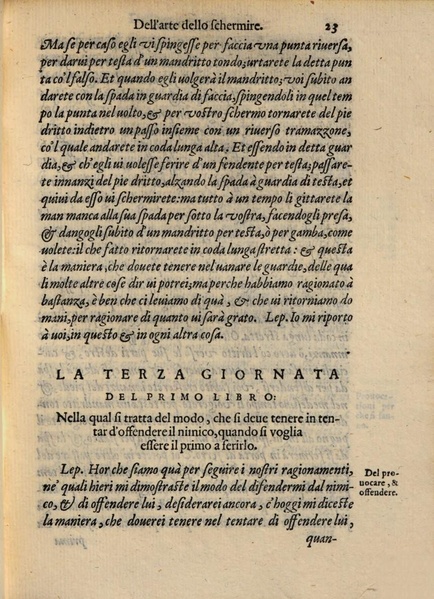 Dell'arte dello schermire. 23
Ma se per caso egli vi spingesse per faccia vna punta riuersa,
per darui per testa d'un mandritto tondo; urtarete la detta pun
ta co'l falso. Et quando egli uolgerà il mandritto; voi subito an
darete con la spada in guardia di faccia, spingendoli in quel tem
po la punta nel uolto, & per vostro schermo tornarete del pie
dritto indietro un passo insieme con un riuerso tramazzone,
co'l quale andarete in coda lunga alta. Et essendo in detta guar
dia, & ch'egli ui uolesse ferire d'un fendente per testa; passare-
te innanzi del pie dritto, alzando la spada à guardia di testa, et
quiui da esso vi schermirete: ma tutto à un tempo li gittarete la
man manca alla sua spada per sotto la vostra, facendogli presa,
& dandogli subito d'un mandritto per testa, ò per gamba, come
uolete: il che fatto ritornarete in coda lunga stretta: & questa
è la maniera, che douete tenere nel uariare le guardie, delle qua
li molte altre cose dir ui potrei; ma perche habbiamo ragionato à
bastanza, è ben che ci leuiamo di quà, & che ui ritorniamo do
mani, per ragionare di quanto ui sarà grato. Lep. Io mi riporto
à voi, in questo & in ogni altra cosa.
LA TERZA GIORNATA
DEL PRIMO LIBRO:
Nella qual si tratta del modo, che si deue tenere in ten-
tar d'offendere il nimico, quando si voglia
essere il primo a ferirlo.
Lep. Hor che siamo quà per seguire i nostri ragionamenti,
ne' quali hieri mi dimostraste il modo del difendermi dal nimi-
co, & di offendere lui, desiderarei ancora, c'hoggi mi diceste
la maniera, che douerei tenere nel tentare di offendere lui,
quan-
Del pro
uocare, &
offendere.